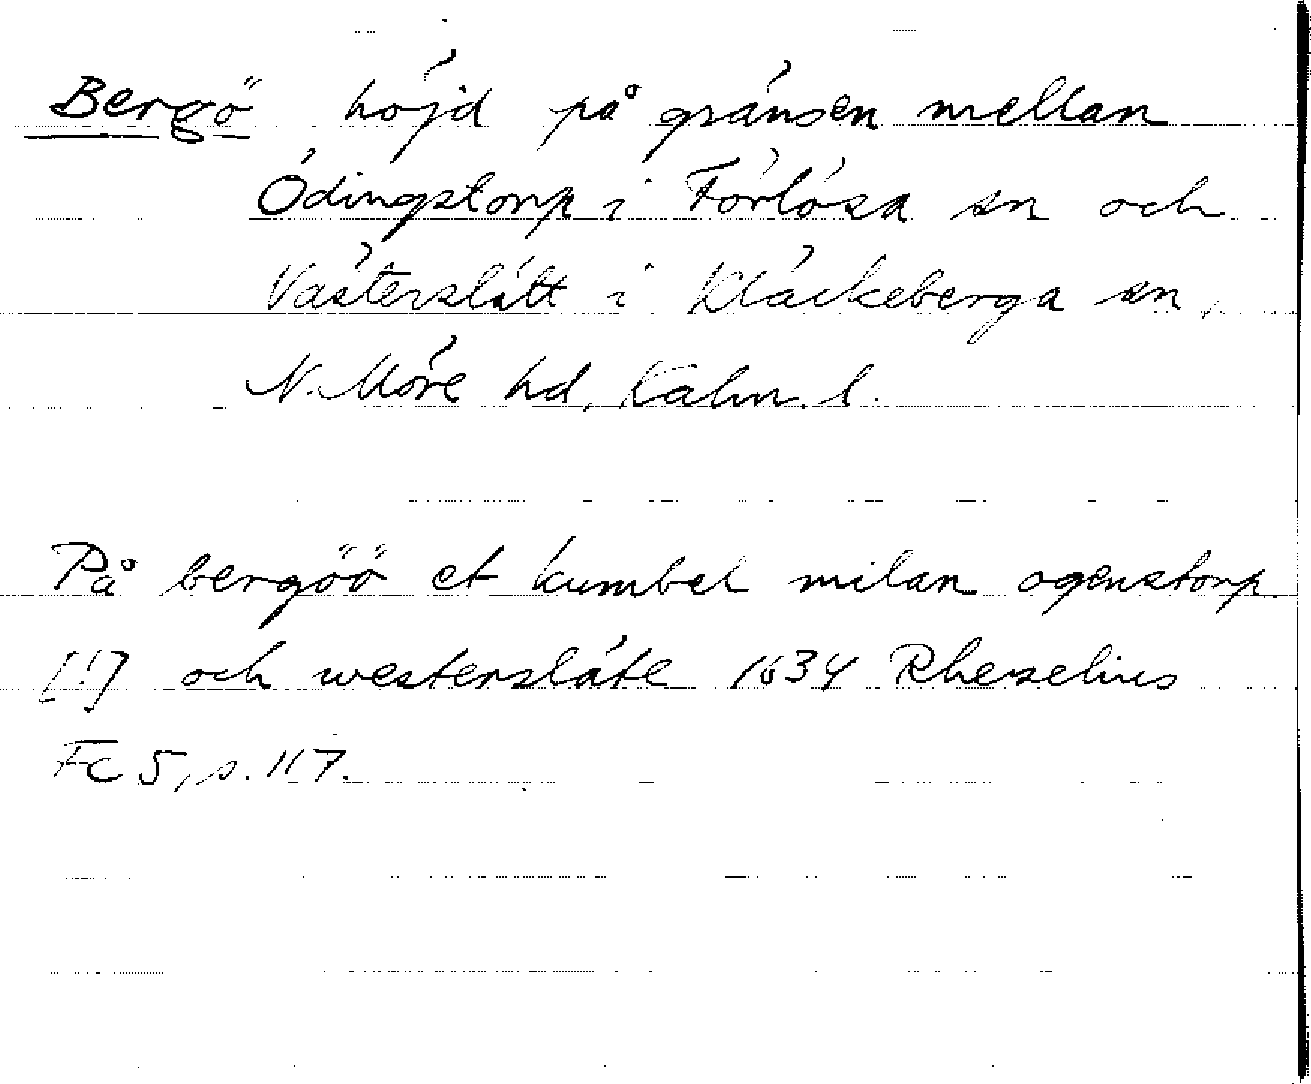 Bergö höjd på gränsen mellan
Ödingstorp i Förlösa sn och
Västerslätt i Kläckeberga sn,
N. Möre hd, Kalm. l.
På bergöö et kumbel milan ogenstorp
[!] och westersläte 1634 Rhezelius
Fc 5, s. 117.